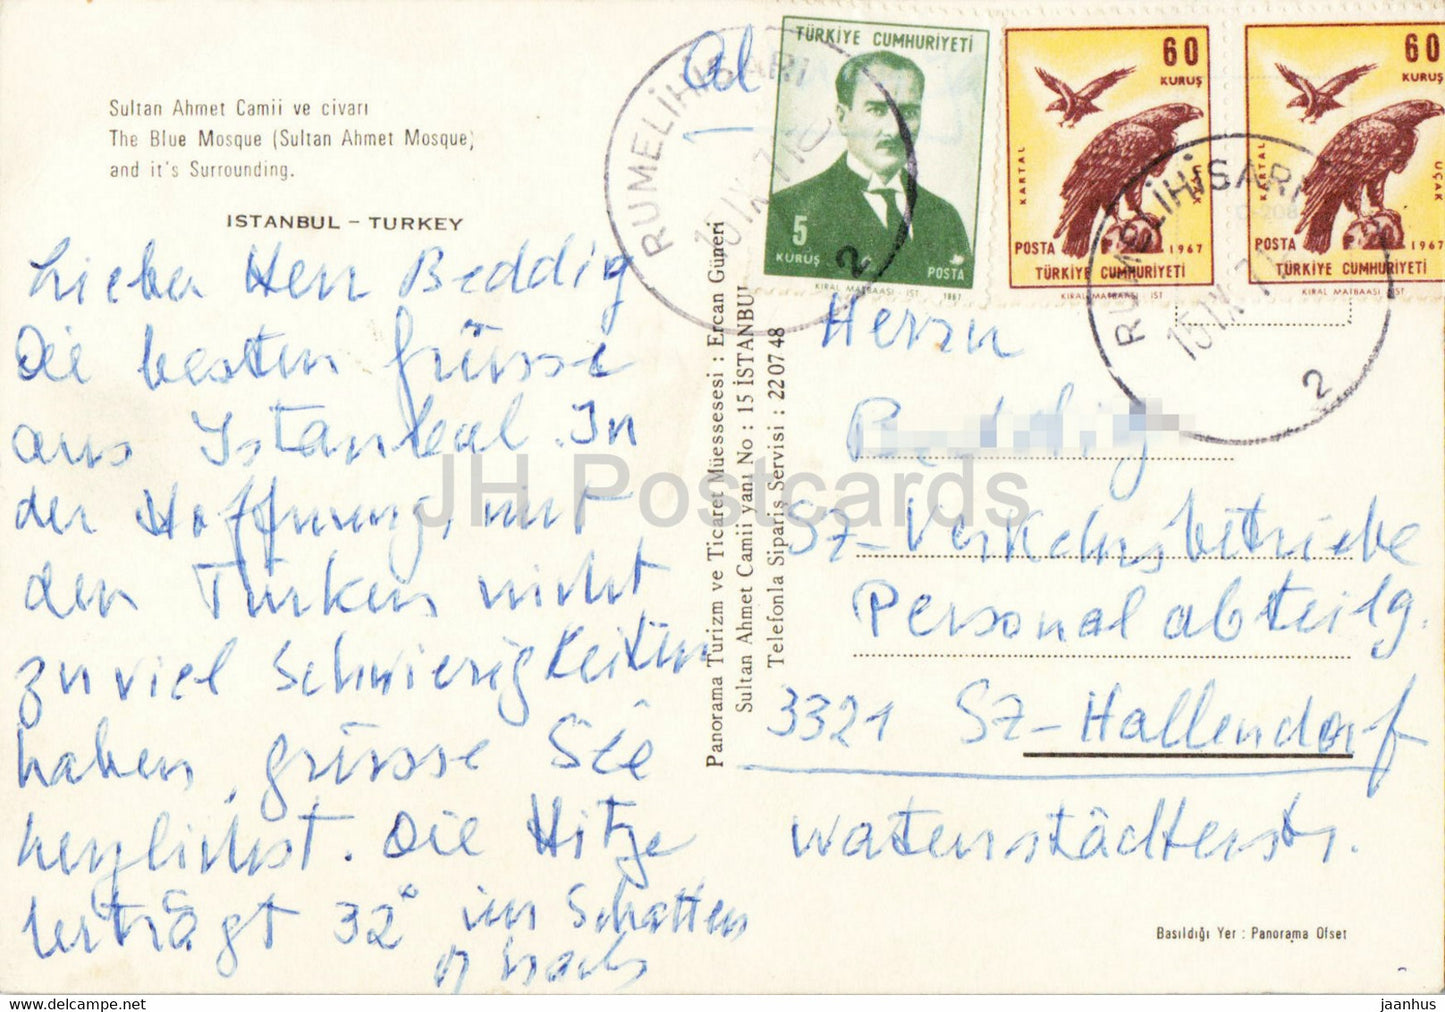 Sultan Ahmet Camii ve civarı
The Blue Mosque (Sultan Ahmet Mosque)
and it's Surrounding.
ISTANBUL – TURKEY
Lieber Herr Beddig
Die besten Grüsse
aus Istanbul. In
der Hoffnung, mit
den Türken nicht
zu viel Schwierigkeiten
haben, grüsse Sie
herzlichst. Die Hitze
beträgt 32° im Schatten
Panorama Turizm ve Ticaret Müessesesi : Ercan Güneri
Sultan Ahmet Camii yanı No : 15 İSTANBUL
Telefonla Sipariş Servisi : 22 07 48
TÜRKİYE CUMHURİYETİ
5
KURUŞ
POSTA
KIRAL MATBAASI - IST 1967
60
KURUŞ
KARTAL
UÇAK
POSTA 1967
TÜRKİYE CUMHURİYETİ
KIRAL MATBAASI IST
60
KURUŞ
KARTAL
UÇAK
POSTA 1967
TÜRKİYE CUMHURİYETİ
KIRAL MATBAASI IST
RUMELİHİSARI
15 IX 71
2
RUMELİHİSARI
15 IX 71
2
Herrn
Beddig
SZ-Verkehrsbetriebe
Personalabteilg.
3321 SZ-Hallendorf
Watenstädterstr.
Basıldığı Yer : Panorama Ofset
JH Postcards
hippostcard.com
jaanhus